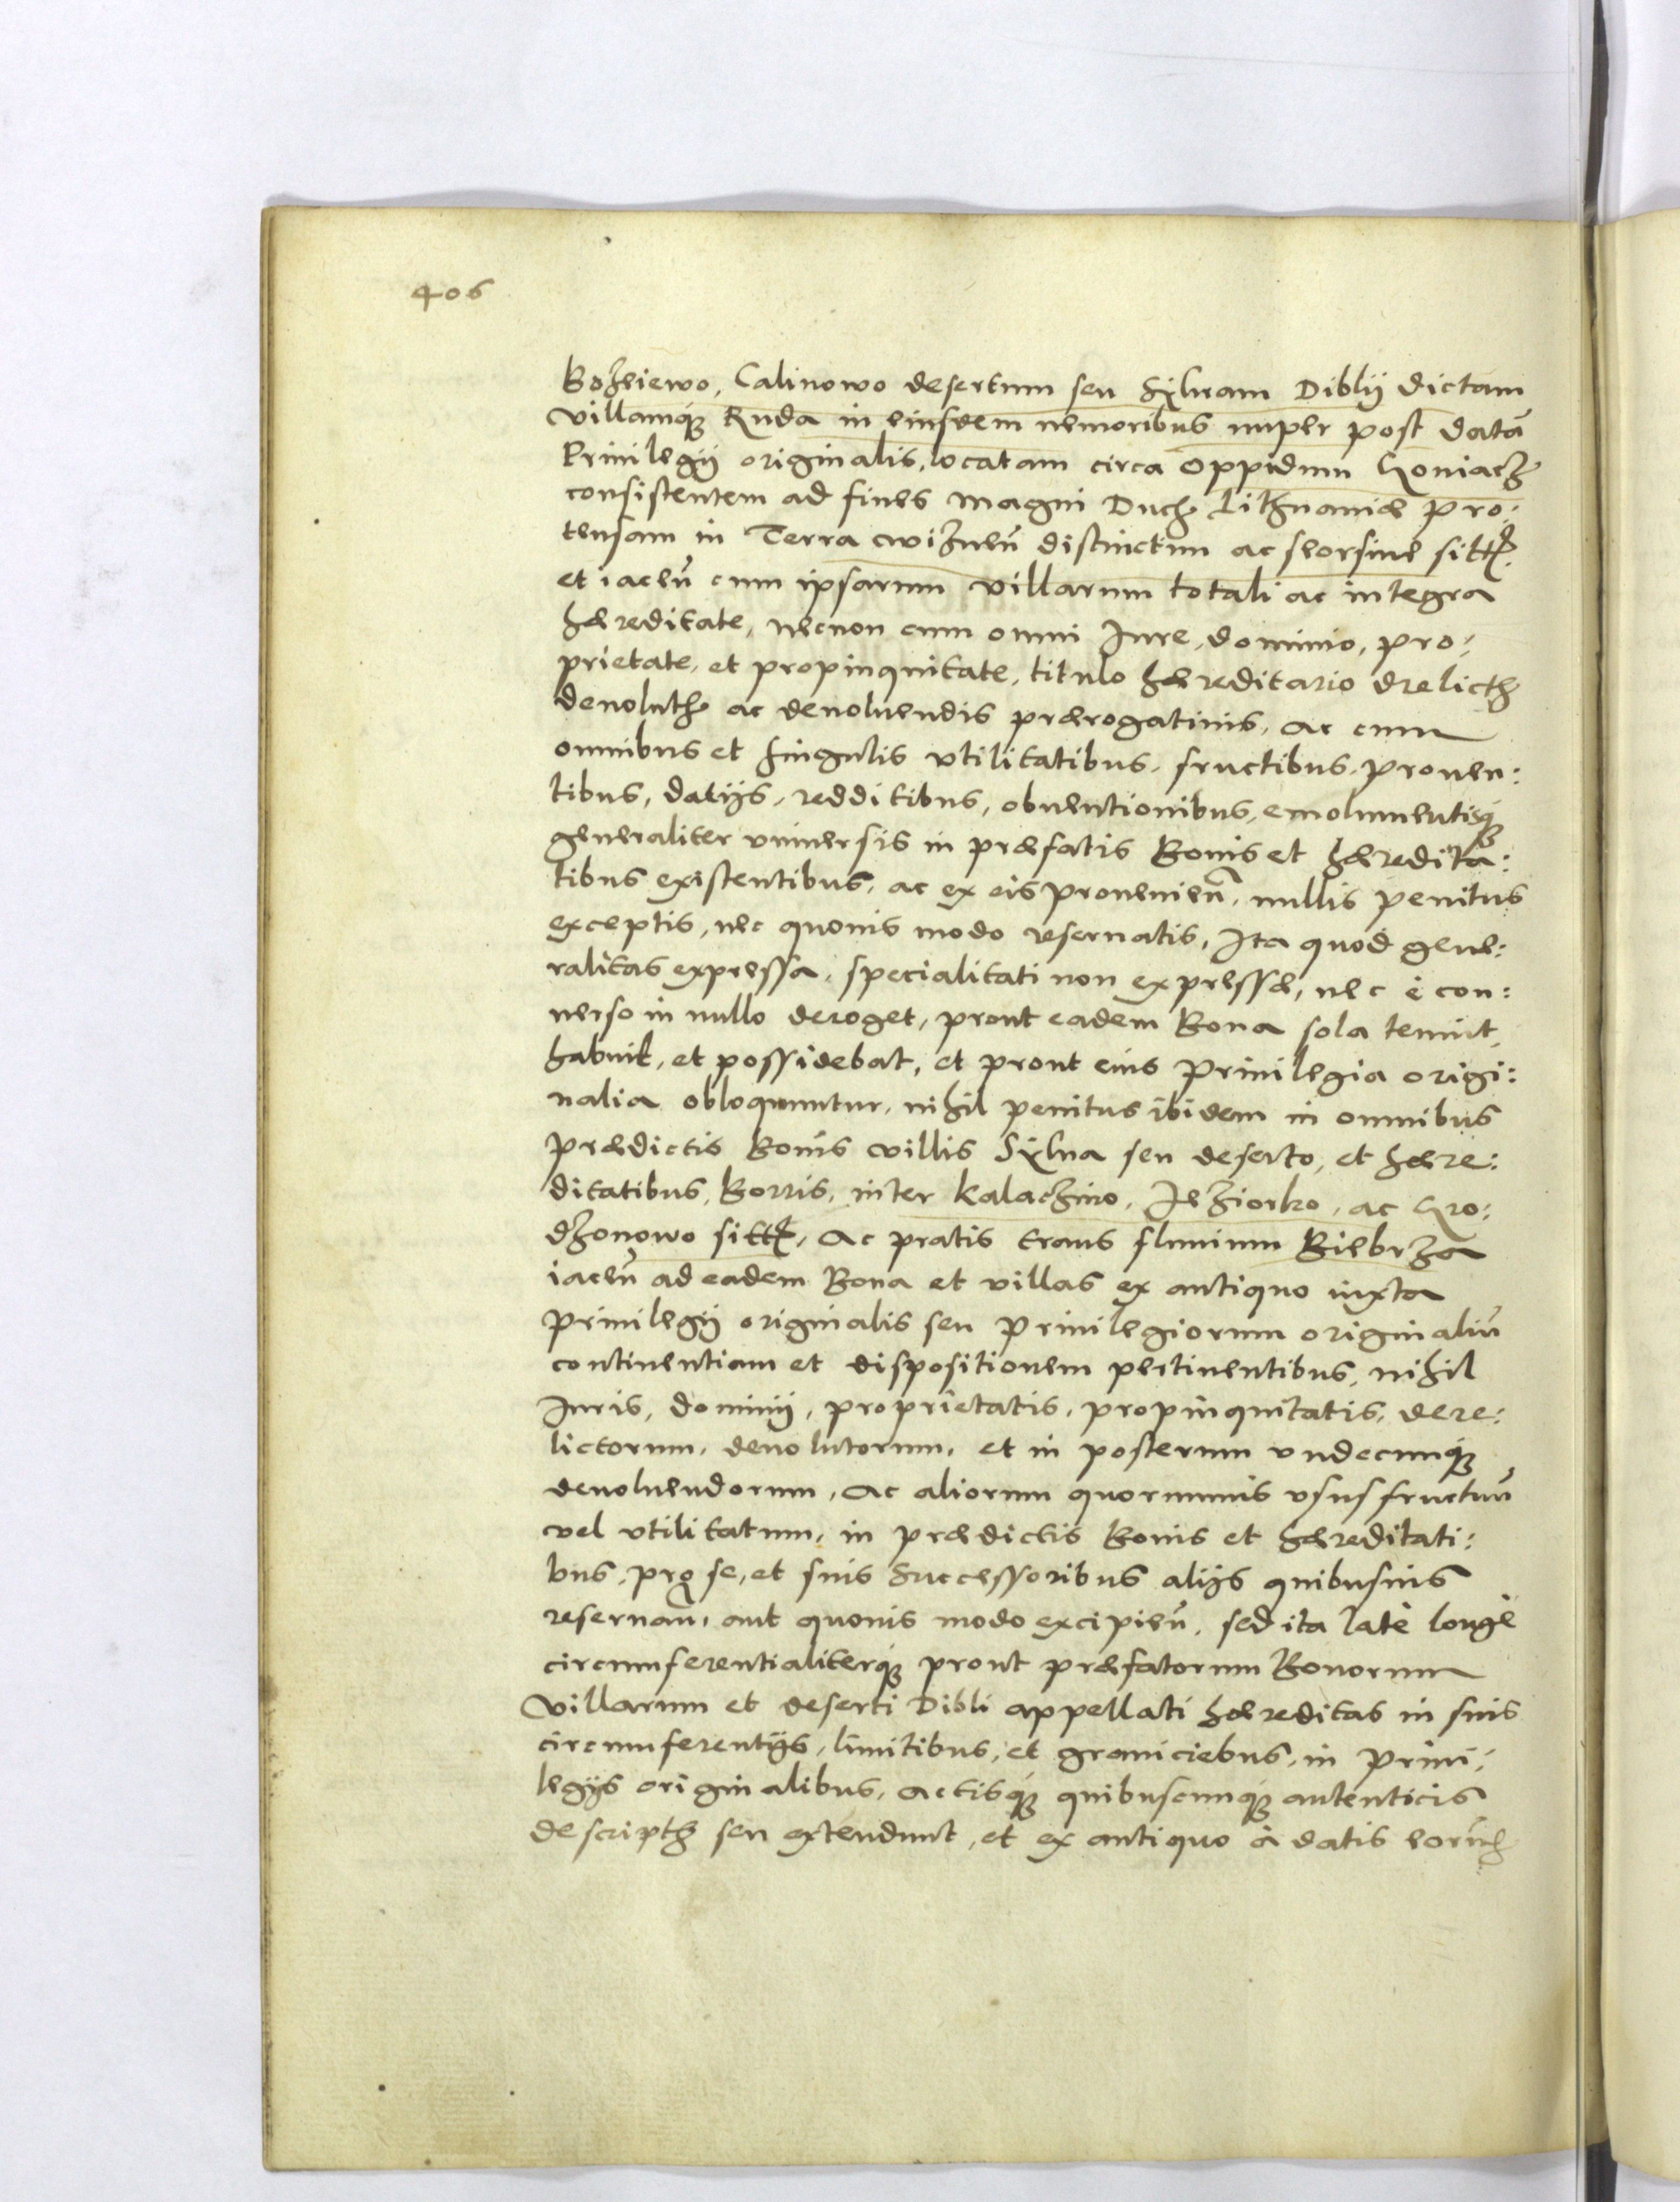 406
Bozeiewo, Calinowo desertum seu Sÿluam Diblÿ dictam
villamq; Ruda in eiusdem nemoribus nuper post datā
Priuilegÿ originalis, locatam circa oppidum Goniacz
consistentem ad fines Magni Duc. Lithuaniæ pro:
tensam in Terra Wiznen̄ distinctim ac seorsiue sitt.
et iacen̄ cum ipsarum villarum totali ac integra
hæreditate, necnon cum omni Iure, dominio, pro:
prietate, et propinquitate, titulo hæreditario drelict.
deuolut. ac deuoluendis prærogatiuis, ac cum
omnibus et singulis vtilitatibus, fructibus, prouen:
tibus, datÿs, redditibus, obuentionibus, emolumentisq;
generaliter vniuersis in præfatis Bonis et hæredita:
tibus existentibus, ac ex eis prouenien̄, nullis penitus
exceptis, nec quouis modo reseruatis, Ita quod gene:
ralitas expressa, specialitati non expressæ, nec è con:
uerso in nullo deroget, prout eadem Bona sola tenuit,
habuit, et possidebat, et prout eius Priuilegia origi:
nalia obloquuntur, nihil penitus ibidem in omnibus
prædictis Bonis villis Sÿlua seu deserto, et hære:
ditatibus, Borris, inter Kalaczino, Jeziorko, ac Gro:
dzonowo sitt., Ac pratis trans fluuium Biebrza
iacen̄ ad eadem Bona et villas ex antiquo iuxta
priuilegÿ originalis seu Priuilegiorum originaliū
continentiam et dispositionem pertinentibus, nihil
Iuris, dominÿ, proprietatis, propinquitatis, dere:
lictorum, deuolutorum, et in posterum vndecunq;
deuoluendorum, Ac aliorum quorumuis vsusfructuū
vel vtilitatum, in prædictis Bonis et hæreditati:
bus, pro se, et suis Successoribus alÿs quibusuis
reseruan̄, aut quouis modo excipien̄, sed ita latè longè
circumferentialiterq; prout præfatorum Bonorum
Villarum et deserti Dibli appellati hæreditas in suis
circumferentÿs, limitibus, et graniciebus, in Priui:
legÿs originalibus, actisq; quibuscunq; autenticis
descript. seu extendunt, et ex antiquo à datis